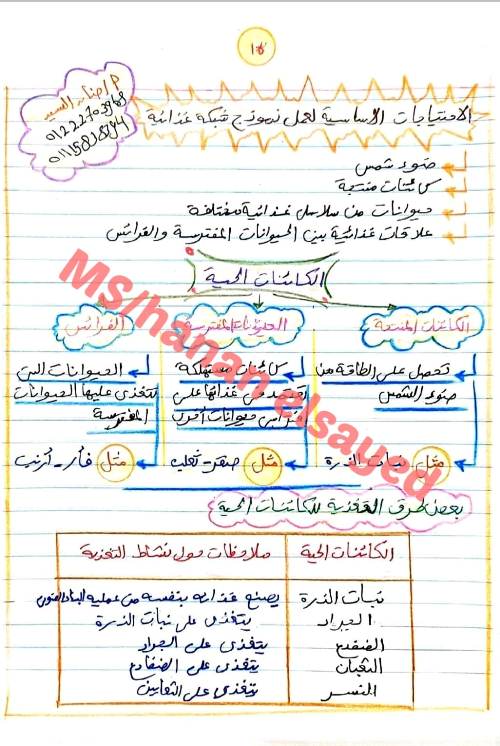 ١٤
م/حنان السيد
01222703968
الاحتياجات الاساسية لعمل نموذج شبكة غذائية
ضوء شمس
كائنات منتجة
حيوانات من سلاسل غذائية مختلفة
علاقات غذائية بين الحيوانات المفترسة والفرائس
الكائنات الحية
الكائنات المنتجة
تحصل على الطاقة من
ضوء الشمس
مثل نبات الذرة
الحيوانات المفترسة
كائنات مستهلكة
تعتمد في غذائها على
افتراس حيوانات أخرى
مثل صقر - ثعلب
الفرائس
الحيوانات التي
تتغذى عليها الحيوانات
المفترسة
مثل فأر - أرنب
بعض طرق التغذية للكائنات الحية
الكائنات الحية ملاحظات حول نشاط التغذية
نبات الذرة يصنع غذائه بنفسه من عملية البناء الضوئى
الجراد يتغذى على نبات الذرة
الضفدع يتغذى على الجراد
الثعبان يتغذى على الضفادع
النسر يتغذى على الثعابين
MS/hanan elsayed